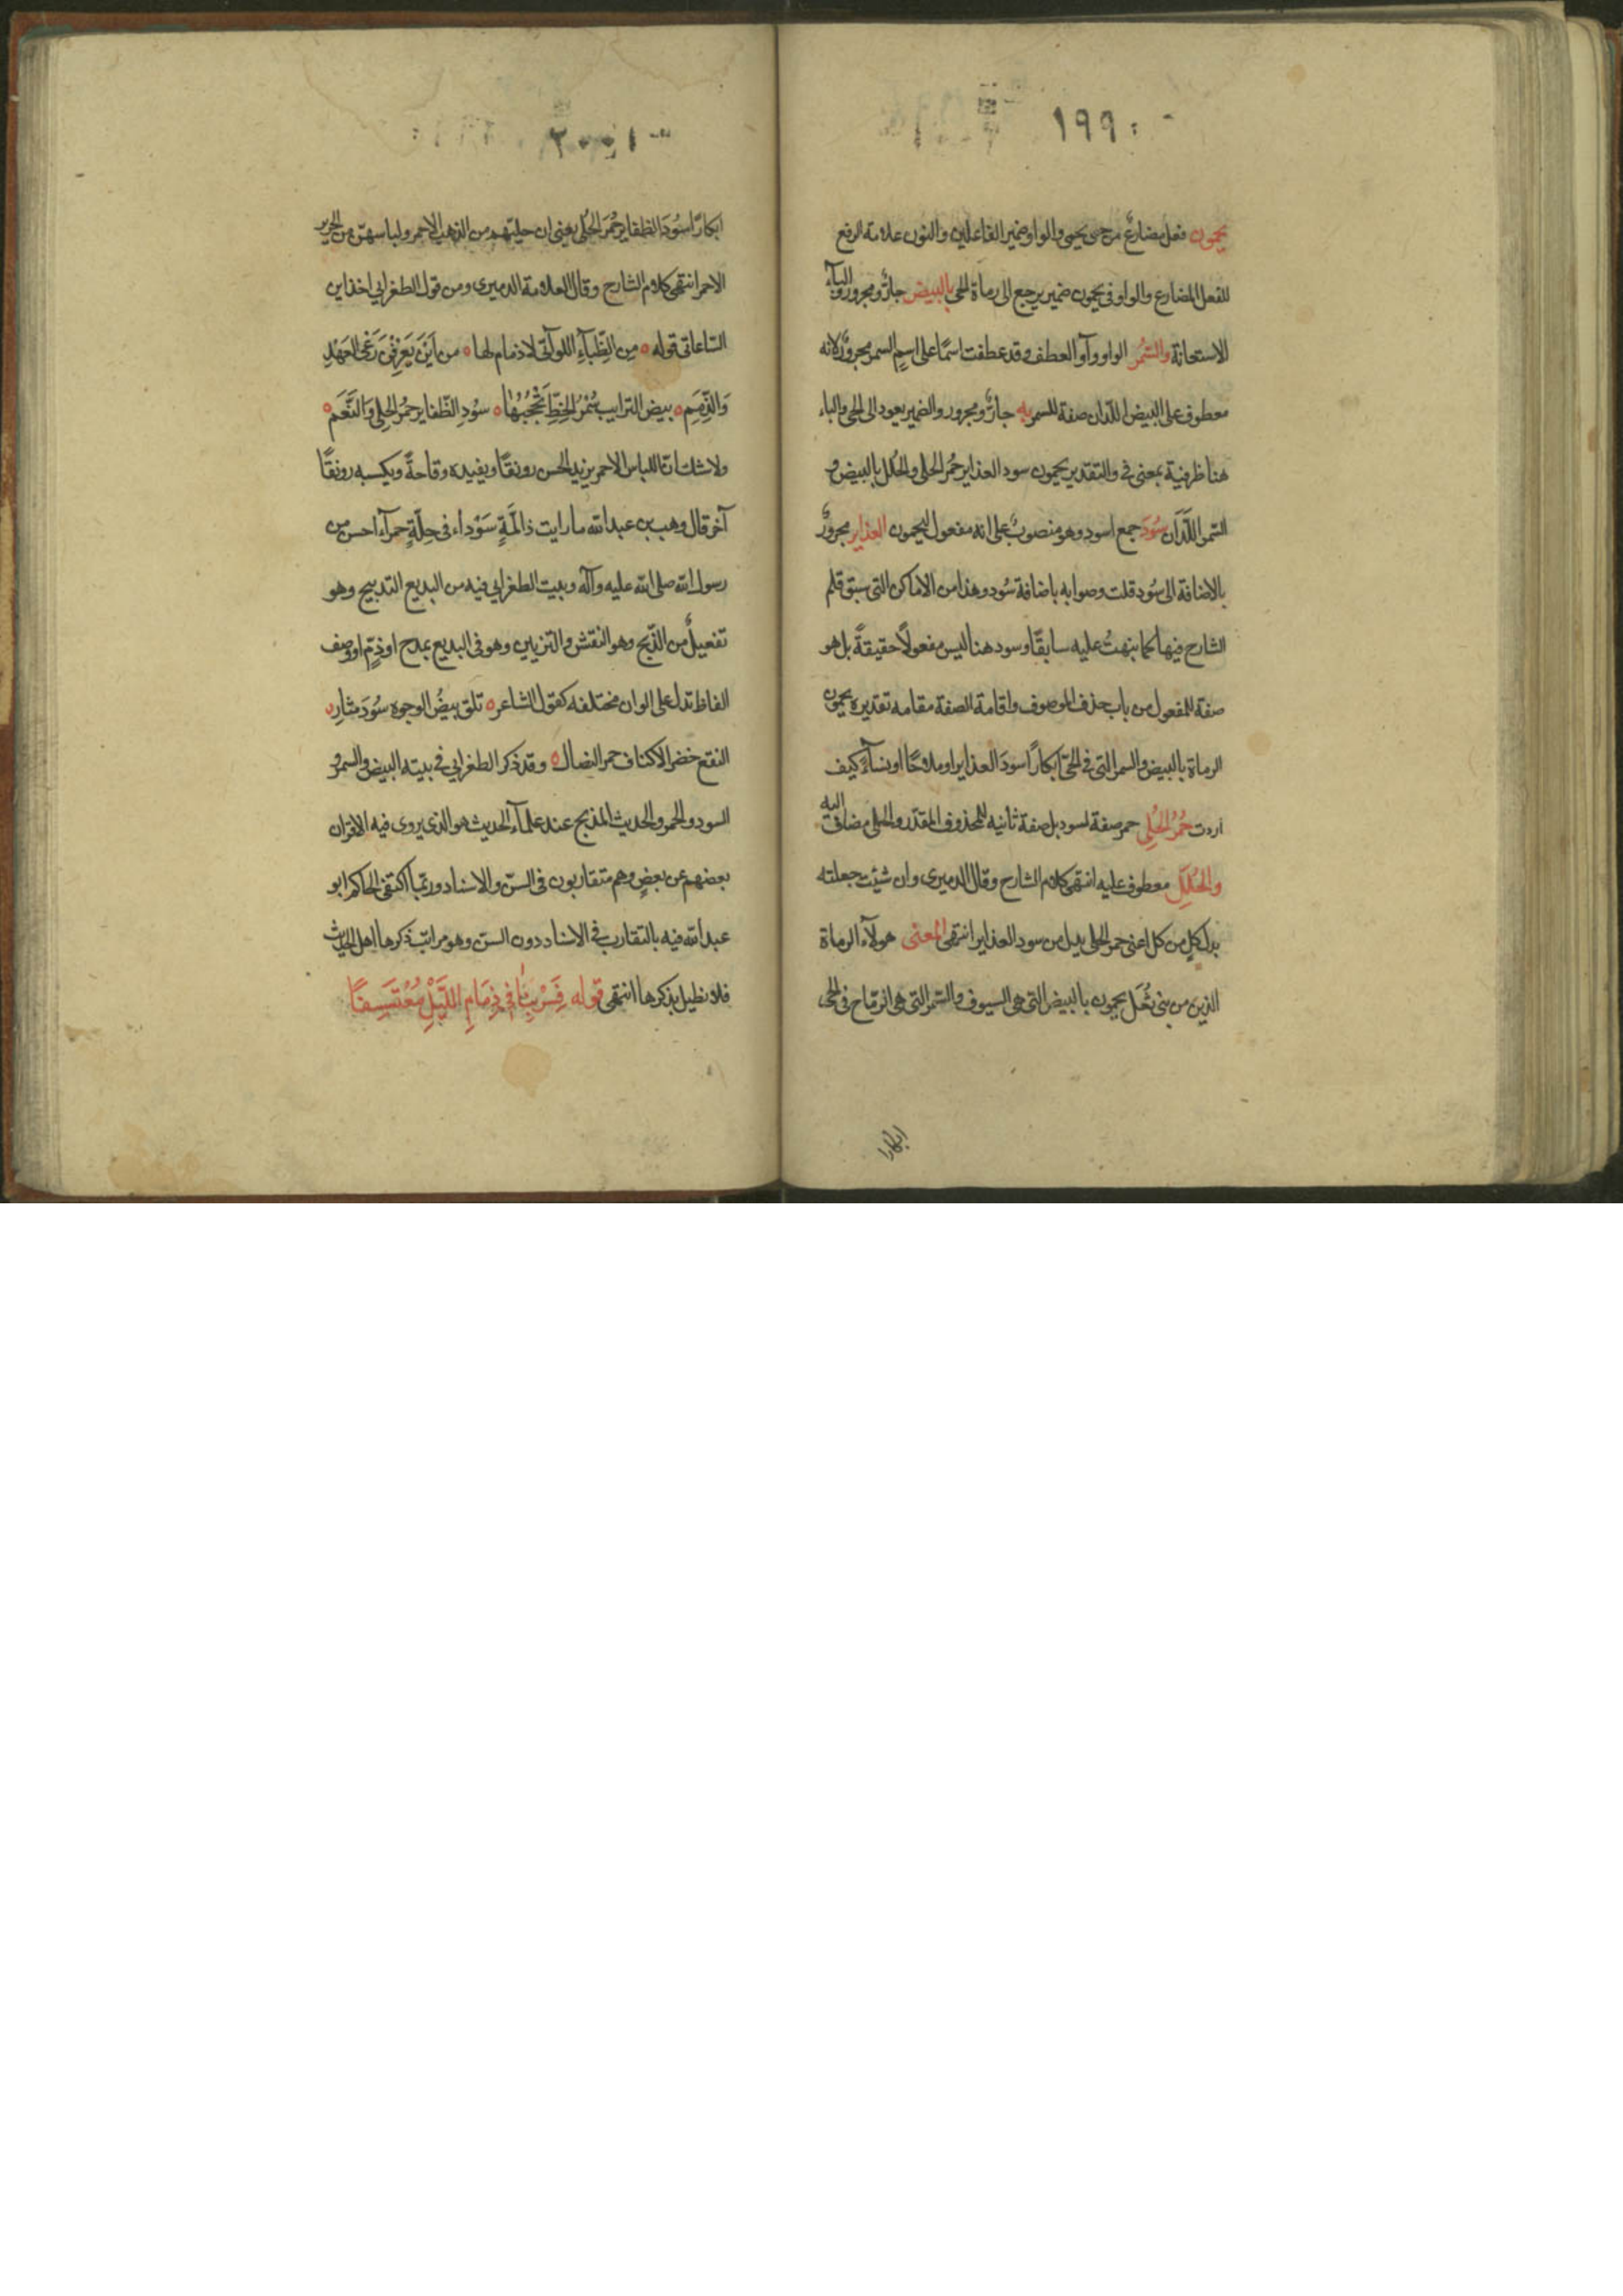 ١٩٩
يحمون فعل مضارع من حمى يحمى والواو ضمير الفاعلين والنون علامة الرفع
للفعل المضارع والواو في يحمون ضمير يرجع الى رماة الحي بالبيض جارٌّ ومجرور والبآء
للاستعانة والسُّمُر الواو وآو العطف وقد عطفت اسمًا على اسمٍ السمر مجرورٌ لانه
معطوف على البيض اللدان صفة للسمر به جارٌّ ومجرور والضمير يعود الى الحي والباء
هنا ظرفية بمعنى في والتقدير يحمون سود العذاير حمُر الحلى والحُلل بالبيض و
السّمر اللّدَان سُودَ جمع اسود وهو منصوبٌ على انه مفعول ليحمون العذاير مجرورٌ
بالاضافة الى سُود قلت وصوابه باضافة سُود وهذا من الاماكن التى سبق قلم
الشارح فيها كما نبهتُ عليه سابقًا وسود هنا ليس مفعولًا حقيقةً بل هو
صفة للمفعول من باب حذف الموصوف واقامة الصفة مقامه تقديره يحمون
الرماة بالبيض والسمر التى فى الحىّ ابكارًا سودَ العذاير او ملاحًا او نسآءً كيف
اردت حُمْرُ الحُلِي حمر صفة لسود بل صفة ثانيه للمحذوف المقدّر والحلى مضاف اليه
والحُلَلِ معطوف عليه انتهى كلام الشارح وقال الدميرى وان شئت جعلته
بدل كلٍ من كل اعنى حمر الحلى بدل من سود العذاير انتهى المعنى هولآء الرماة
الذين من بنى ثُعَل يحمون بالبيض التى هى السيوف والسّمر التى هى الرّماح فى الحى
ابكارا
٢٠٠
ابكارًا سُودَ الظفاير حُمْرَ الحُلى يعنى ان حليتهم من الذهب الاحمر ولباسهنّ من الحرير
الاحمر انتهى كلام الشارح وقال العلامة الدميرى ومن قول الطغرايى اخذ ابن
السّاعاتى قوله ٥ مِن الظِّبآءِ اللوآتى لا ذمام لها ٥ من اَيْنَ يَعْرِفْنَ رَعْىَ العَهْدِ
وَالذِّمَمِ ٥ بيض الترايب سُمْرُ الخطِّ تَحْجُبُهٰا ٥ سُودِ الظّفاير حمُر الحِلِى وَالنَّعَم ٥
ولا شك انّ اللباس الاحمر يزيد الحسن رونقًا ويفيده وقاحةً ويكسبه رونقًا
آخر قال وهب بن عبد الله ما رايت ذا لمّةٍ سَوْداء فى حلّةٍ حمرآء احسن من
رسول الله صلى الله عليه وآله وبيت الطغرايى فيه من البديع التدبيج وهو
تفعيلٌ من الذّبج وهو النقش والتزيين وهو فى البديع بمدح او ذمٍّ او وصف
الفاظ تدل على الوان مختلفه كقول الشاعر ٥ تلق بيضُ الوجوه سُودَ مثار
النقع خضر الاكناف حمر النصال ٥ وقد ذكر الطغرايى فى بيته البيض والسمر و
السود والحمر والحديث المذبج عند علمآء الحديث هو الذى يروى فيه الاقران
بعضهم عن بعضٍ وهم متقاربون فى السنّ والاسناد وربّما اكتفى الحاكم ابو
عبد الله فيه بالتقارب فى الاسناد دون السنّ وهو مراتب ذكرها اهل الحديث
فلا نطيل بذكرها انتهى قوله فَسْر بِنٰا فى ذِمَامِ اللَّيْلِ مُعْتَسِفًا